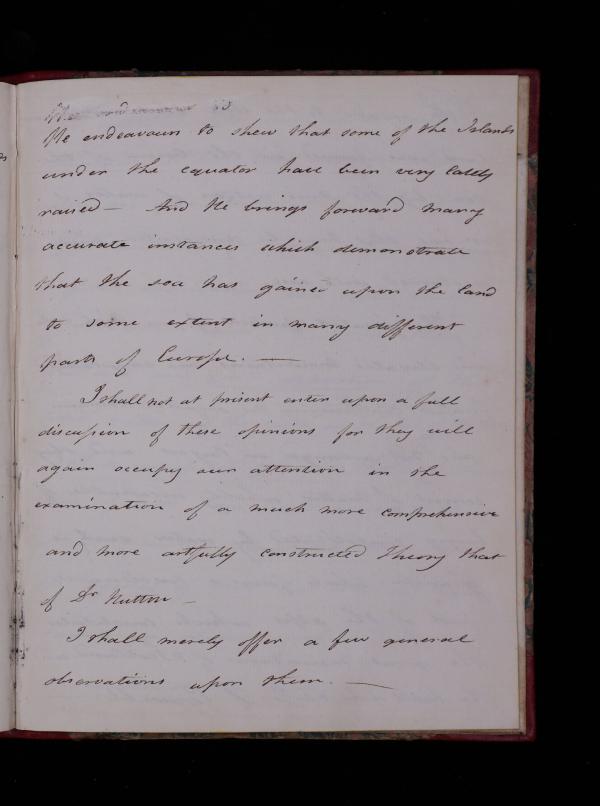 He endeavours to shew that some of the Islands
under the equator have been very lately
raised — And He brings forward many
accurate instances which demonstrate
that the sea has gained upon the land
to some extent in many different
parts of Europe. —
I shall not at present enter upon a full
discussion of these opinions for they will
again occupy our attention in the
examination of a much more comprehensive
and more artfully constructed Theory that
of Dr Hutton —
I shall merely offer a few general
observations upon them. —